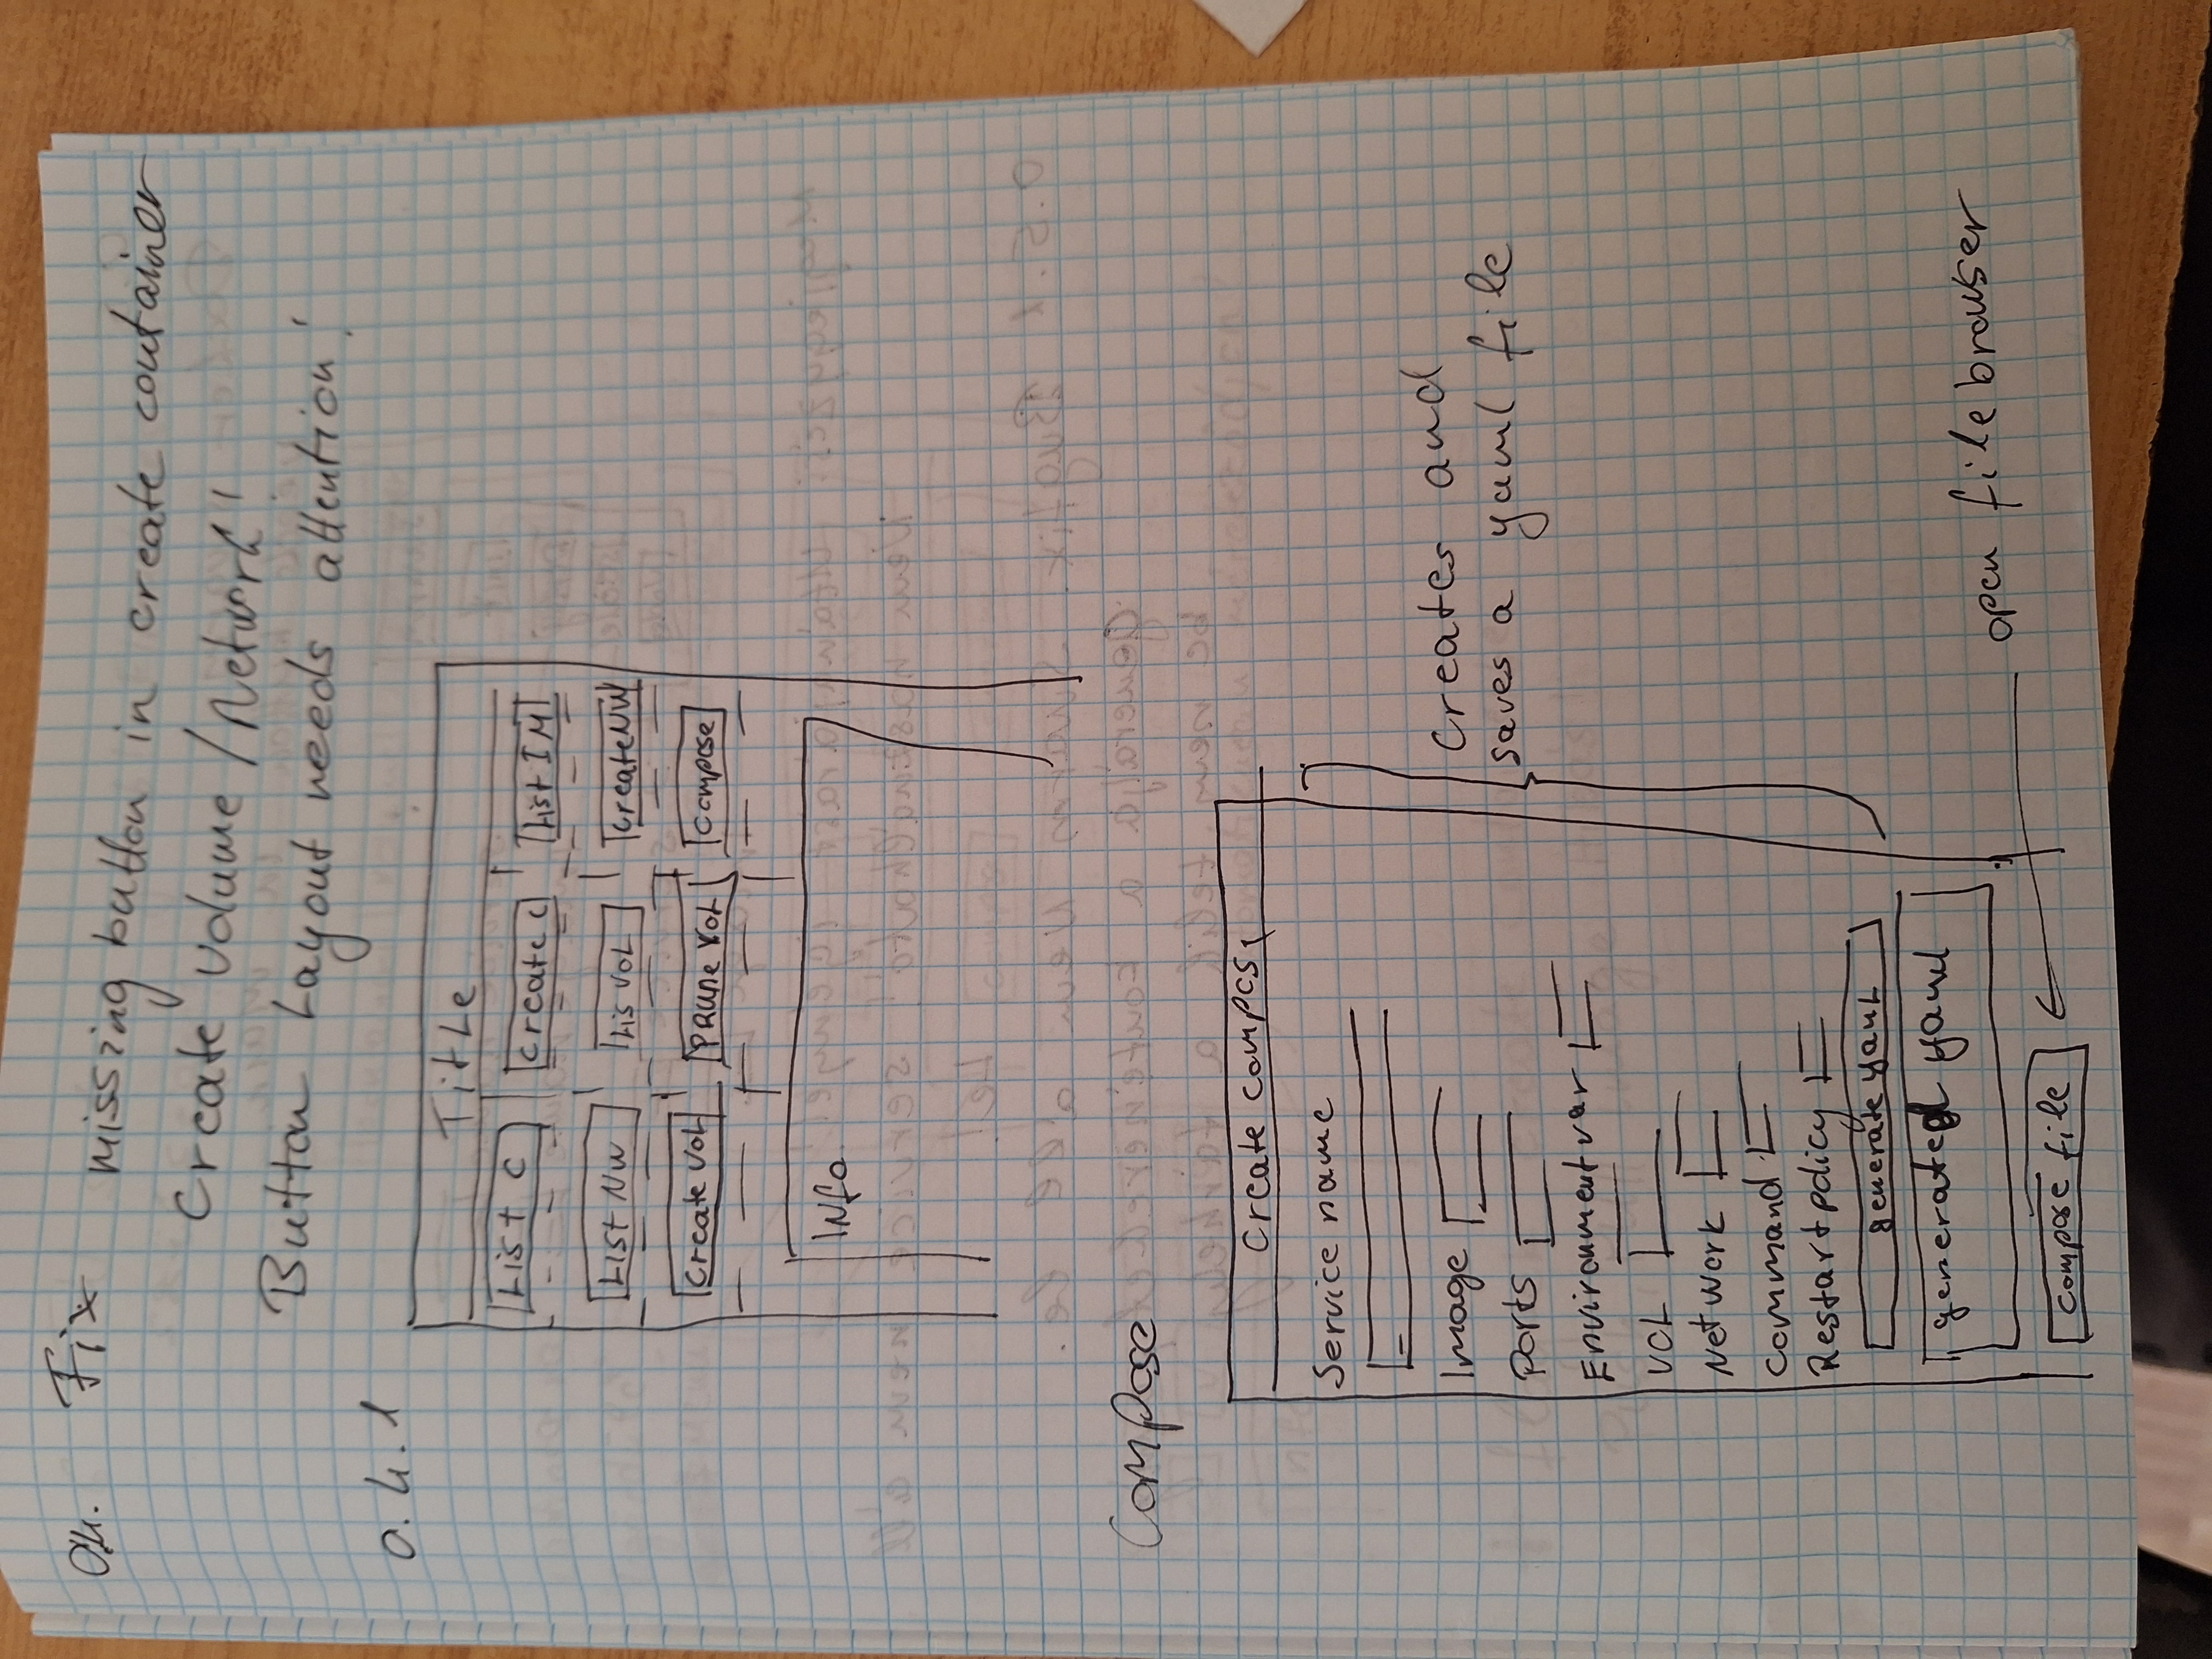 04. Fix missing button in create container
Create Volume / Network!
Button Layout needs attention!
0.4.1
Title
List C Create C List IM
List NW Lis VOL Create NW
Create VOL PRUne VOL Compose
INfo
Compose
Create compose
Service name
Image
Ports
Environment var
VOL
Network
Command
Restart policy
generate yaml
generated yaml
compose file
Creates and
saves a yaml file
open file browser